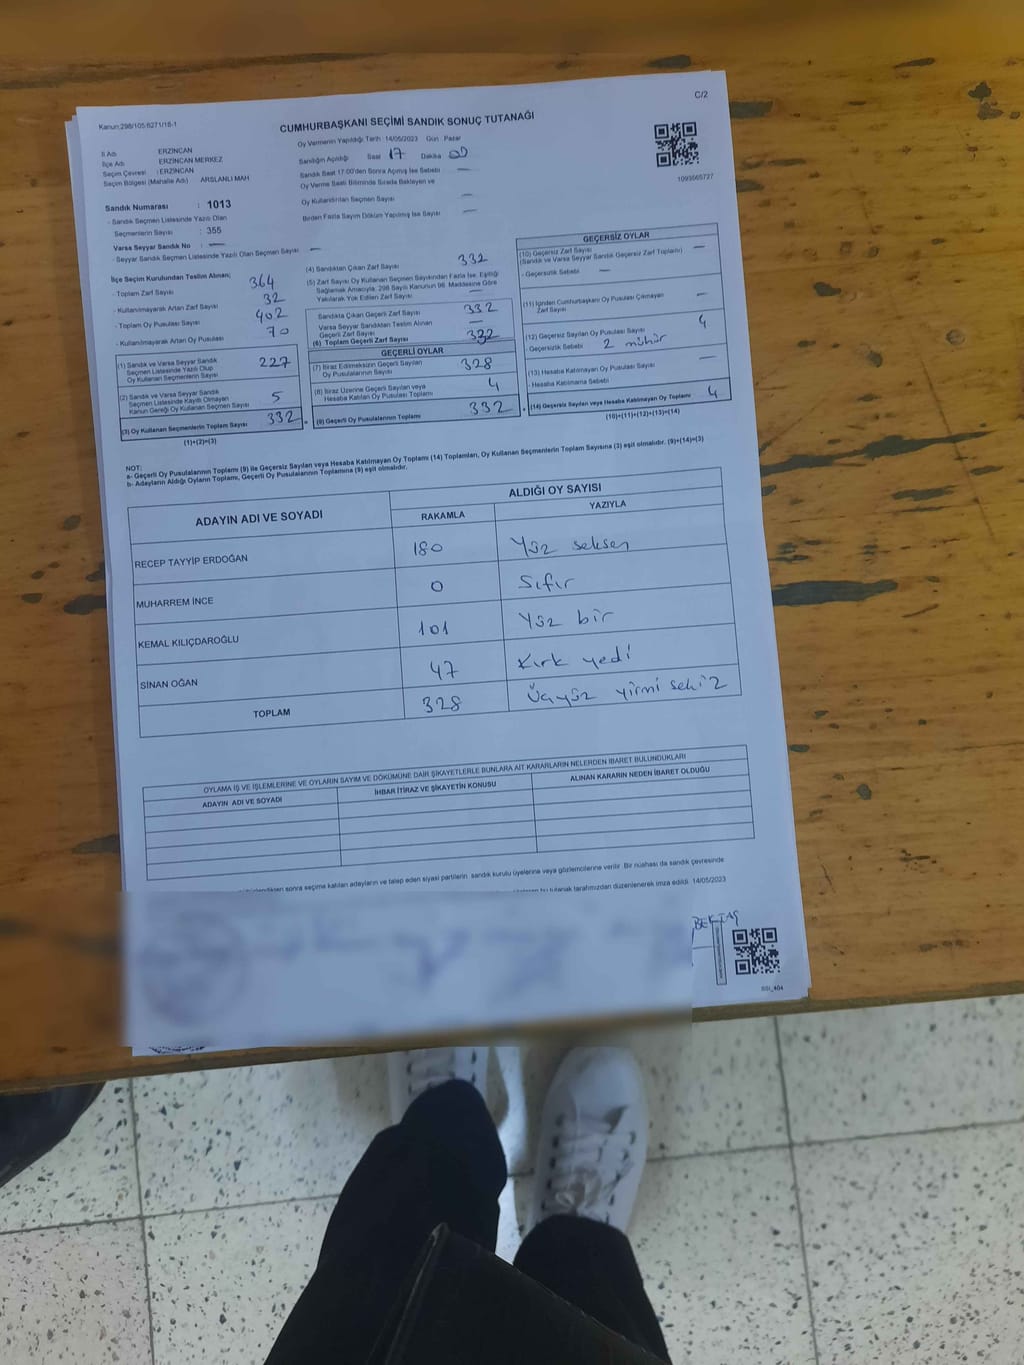 C/2
Kanun:298/105;6271/18-1
CUMHURBAŞKANI SEÇİMİ SANDIK SONUÇ TUTANAĞI
Oy Vermenin Yapıldığı Tarih :14/05/2023 Gün :Pazar
İl Adı : ERZİNCAN
İlçe Adı : ERZİNCAN MERKEZ
Seçim Çevresi : ERZİNCAN
Seçim Bölgesi (Mahalle Adı) : ARSLANLI MAH
Sandığın Açıldığı Saat 17 Dakika 00
Sandık Saat 17:00'den Sonra Açılmış İse Sebebi —
Oy Verme Saati Bitiminde Sırada Bekleyen ve
Oy Kullandırılan Seçmen Sayısı —
Birden Fazla Sayım Döküm Yapılmış İse Sayısı —
1093565727
Sandık Numarası : 1013
- Sandık Seçmen Listesinde Yazılı Olan
Seçmenlerin Sayısı : 355
Varsa Seyyar Sandık No : —
- Seyyar Sandık Seçmen Listesinde Yazılı Olan Seçmen Sayısı —
İlçe Seçim Kurulundan Teslim Alınan;
- Toplam Zarf Sayısı 364
- Kullanılmayarak Artan Zarf Sayısı 32
- Toplam Oy Pusulası Sayısı 402
- Kullanılmayarak Artan Oy Pusulası 70
(1) Sandık ve Varsa Seyyar Sandık
Seçmen Listesinde Yazılı Olup
Oy Kullanan Seçmenlerin Sayısı 227
(2) Sandık ve Varsa Seyyar Sandık
Seçmen Listesinde Kayıtlı Olmayan
Kanun Gereği Oy Kullanan Seçmen Sayısı 5
(3) Oy Kullanan Seçmenlerin Toplam Sayısı 332
(1)+(2)=(3)
(4) Sandıktan Çıkan Zarf Sayısı 332
(5) Zarf Sayısı Oy Kullanan Seçmen Sayısından Fazla İse, Eşitliği
Sağlamak Amacıyla, 298 Sayılı Kanunun 98. Maddesine Göre
Yakılarak Yok Edilen Zarf Sayısı —
Sandıkta Çıkan Geçerli Zarf Sayısı 332
Varsa Seyyar Sandıktan Teslim Alınan
Geçerli Zarf Sayısı —
(6) Toplam Geçerli Zarf Sayısı 332
GEÇERLİ OYLAR
(7) İtiraz Edilmeksizin Geçerli Sayılan
Oy Pusulalarının Sayısı 328
(8) İtiraz Üzerine Geçerli Sayılan veya
Hesaba Katılan Oy Pusulası Toplamı 4
(9) Geçerli Oy Pusulalarının Toplamı 332
GEÇERSİZ OYLAR
(10) Geçersiz Zarf Sayısı
(Sandık ve Varsa Seyyar Sandık Geçersiz Zarf Toplamı) —
- Geçersizlik Sebebi —
(11) İçinden Cumhurbaşkanı Oy Pusulası Çıkmayan
Zarf Sayısı —
(12) Geçersiz Sayılan Oy Pusulası Sayısı 4
- Geçersizlik Sebebi 2 mühür
(13) Hesaba Katılmayan Oy Pusulası Sayısı —
- Hesaba Katılmama Sebebi
(14) Geçersiz Sayılan veya Hesaba Katılmayan Oy Toplamı 4
(10)+(11)+(12)+(13)=(14)
NOT:
a- Geçerli Oy Pusulalarının Toplamı (9) ile Geçersiz Sayılan veya Hesaba Katılmayan Oy Toplamı (14) Toplamları, Oy Kullanan Seçmenlerin Toplam Sayısına (3) eşit olmalıdır. (9)+(14)=(3)
b- Adayların Aldığı Oyların Toplamı, Geçerli Oy Pusulalarının Toplamına (9) eşit olmalıdır.
ADAYIN ADI VE SOYADI
ALDIĞI OY SAYISI
RAKAMLA YAZIYLA
RECEP TAYYİP ERDOĞAN 180 Yüz seksen
MUHARREM İNCE 0 Sıfır
KEMAL KILIÇDAROĞLU 101 Yüz bir
SİNAN OĞAN 47 Kırk yedi
TOPLAM 328 Üçyüz yirmi sekiz
OYLAMA İŞ VE İŞLEMLERİNE VE OYLARIN SAYIM VE DÖKÜMÜNE DAİR ŞİKAYETLERLE BUNLARA AİT KARARLARIN NELERDEN İBARET BULUNDUKLARI
ADAYIN ADI VE SOYADI İHBAR İTİRAZ VE ŞİKAYETİN KONUSU ALINAN KARARIN NEDEN İBARET OLDUĞU
sonra seçime katılan adayların ve talep eden siyasi partilerin sandık kurulu üyelerine veya gözlemcilerine verilir. Bir nüshası da sandık çevresinde
bu tutanak tarafımızdan düzenlenerek imza edildi. 14/05/2023
BEKTAŞ